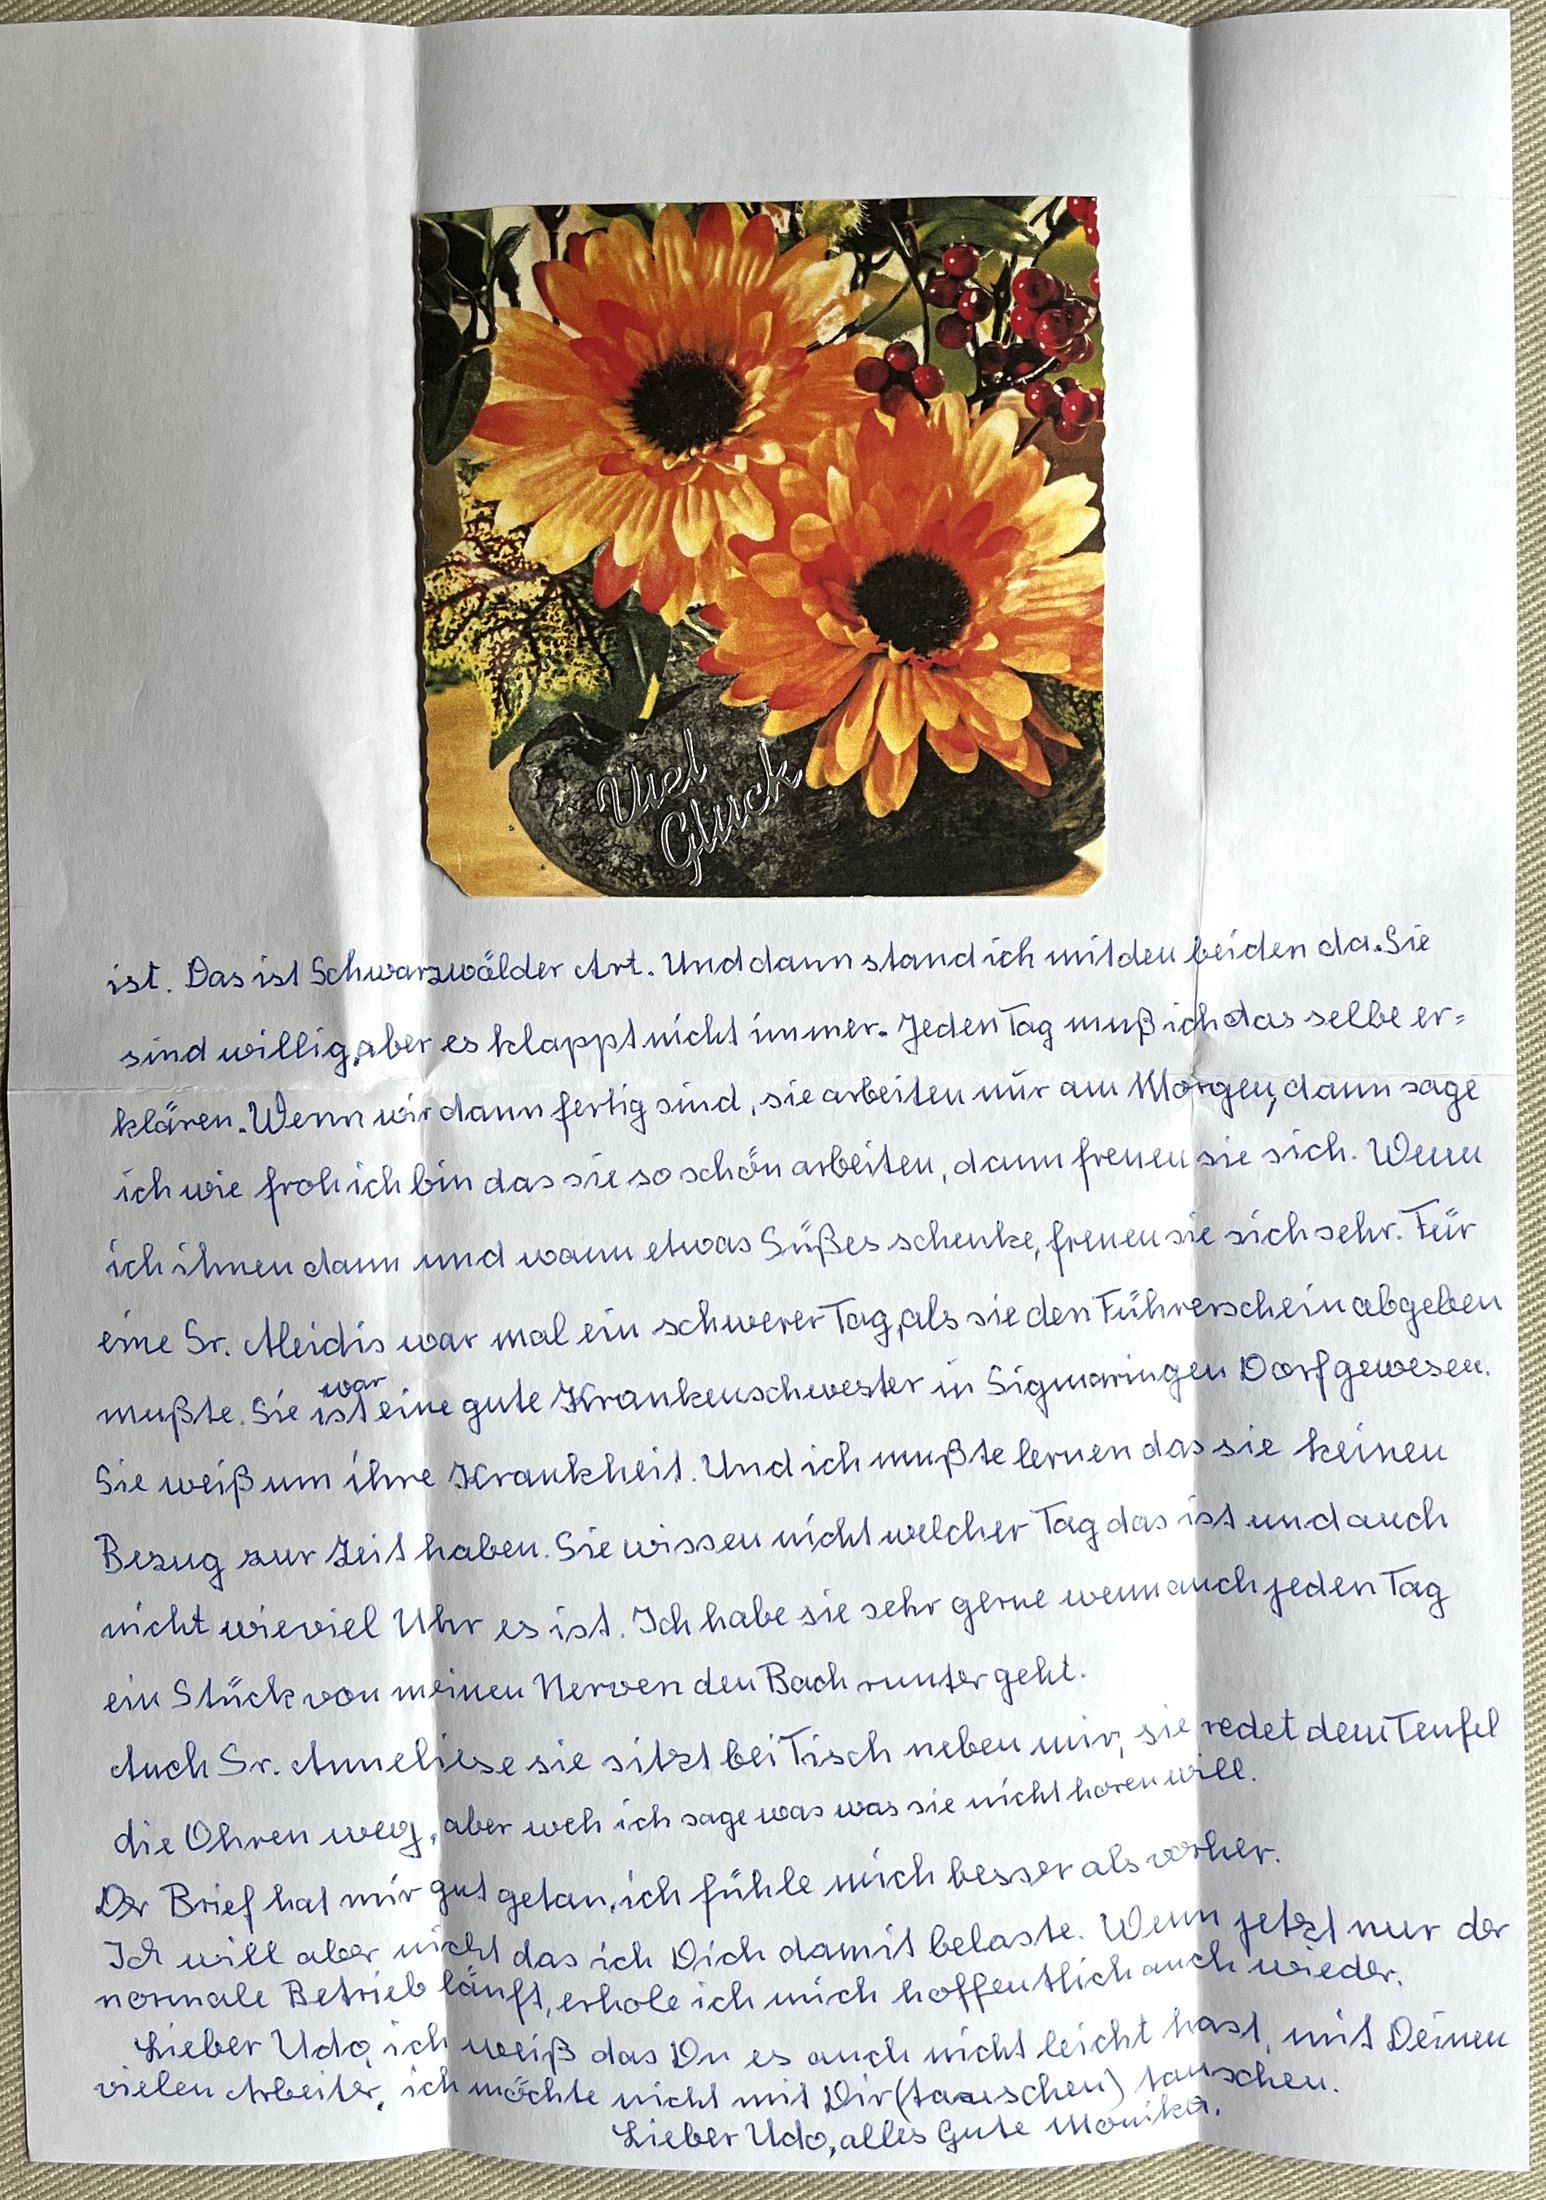 Viel
Glück
ist. Das ist Schwarzwälder Art. Und dann stand ich mit den beiden da. Sie
sind willig, aber es klappt nicht immer. Jeden Tag muß ich das selbe er=
klären. Wenn wir dann fertig sind, sie arbeiten nur am Morgen, dann sage
ich wie froh ich bin das sie so schön arbeiten, dann freuen sie sich. Wenn
ich ihnen dann und wann etwas Süßes schenke, freuen sie sich sehr. Für
eine Sr. Aleidis war mal ein schwerer Tag, als sie den Führerschein abgeben
war
mußte. Sie ist eine gute Krankenschwester in Sigmaringen Dorf gewesen.
Sie weiß um ihre Krankheit. Und ich mußte lernen das sie keinen
Bezug zur Zeit haben. Sie wissen nicht welcher Tag das ist und auch
nicht wieviel Uhr es ist. Ich habe sie sehr gerne wenn auch jeden Tag
ein Stück von meinen Nerven den Bach runter geht.
Auch Sr. Anneliese sie sitzt bei Tisch neben mir, sie redet dem Teufel
die Ohren weg, aber weh ich sage was was sie nicht hören will.
Der Brief hat mir gut getan, ich fühle mich besser als vorher.
Ich will aber nicht das ich Dich damit belaste. Wenn jetzt nur der
normale Betrieb läuft, erhole ich mich hoffentlich auch wieder.
Lieber Udo, ich weiß das Du es auch nicht leicht hast, mit Deinen
vielen Arbeiter, ich möchte nicht mit Dir (tauschen) tauschen.
Lieber Udo, alles Gute Monika.